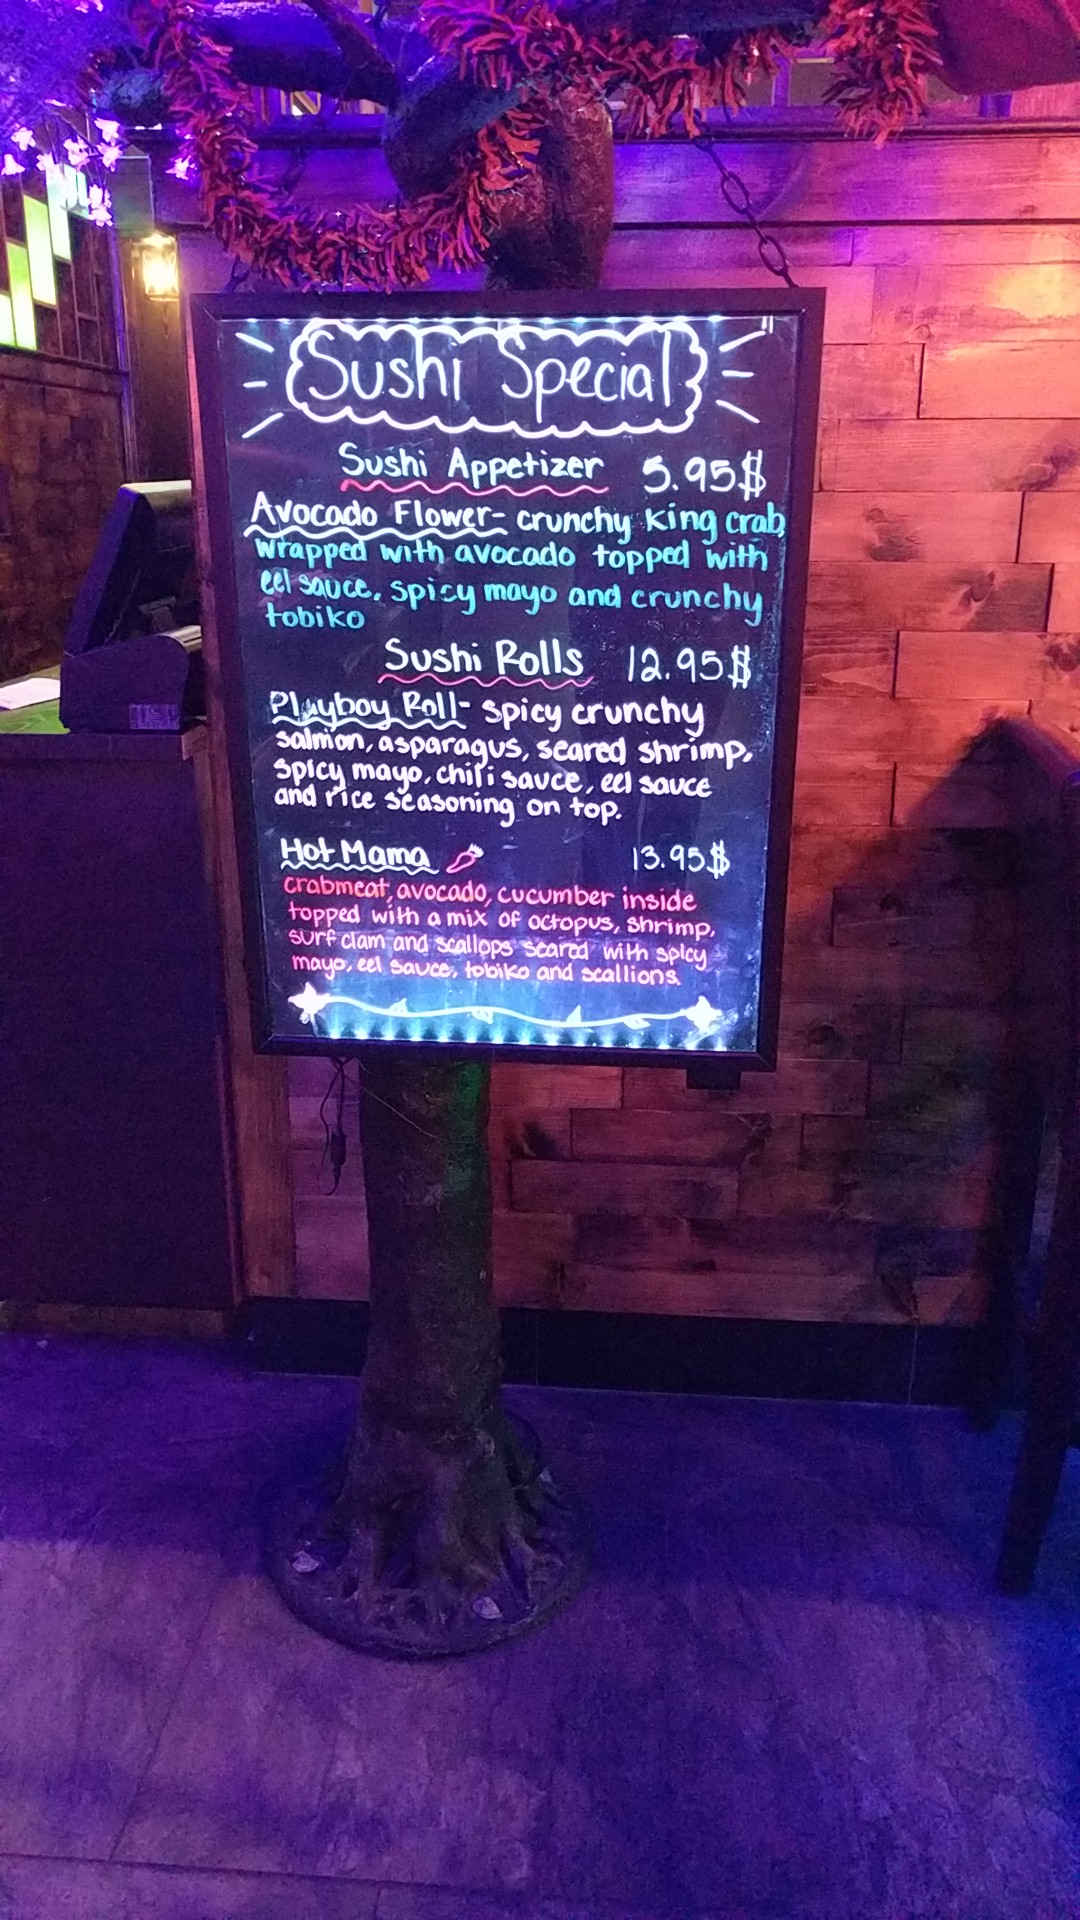 Sushi Special
Sushi Appetizer 5.95$
Avocado Flower- crunchy King crab,
wrapped with avocado topped with
eel sauce, spicy mayo and crunchy
tobiko
Sushi Rolls 12.95$
Playboy Roll- spicy crunchy
salmon, asparagus, seared shrimp,
spicy mayo, chili sauce, eel sauce
and rice seasoning on top.
Hot Mama 13.95$
crabmeat, avocado, cucumber inside
topped with a mix of octopus, shrimp,
surf clam and scallops seared with spicy
mayo, eel sauce, tobiko and scallions.